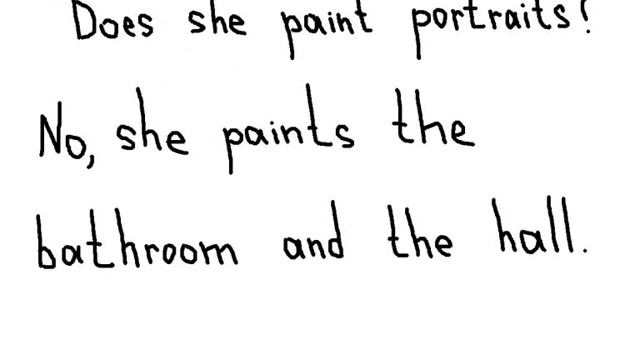 Does she paint portraits?
No, she paints the
bathroom and the hall.